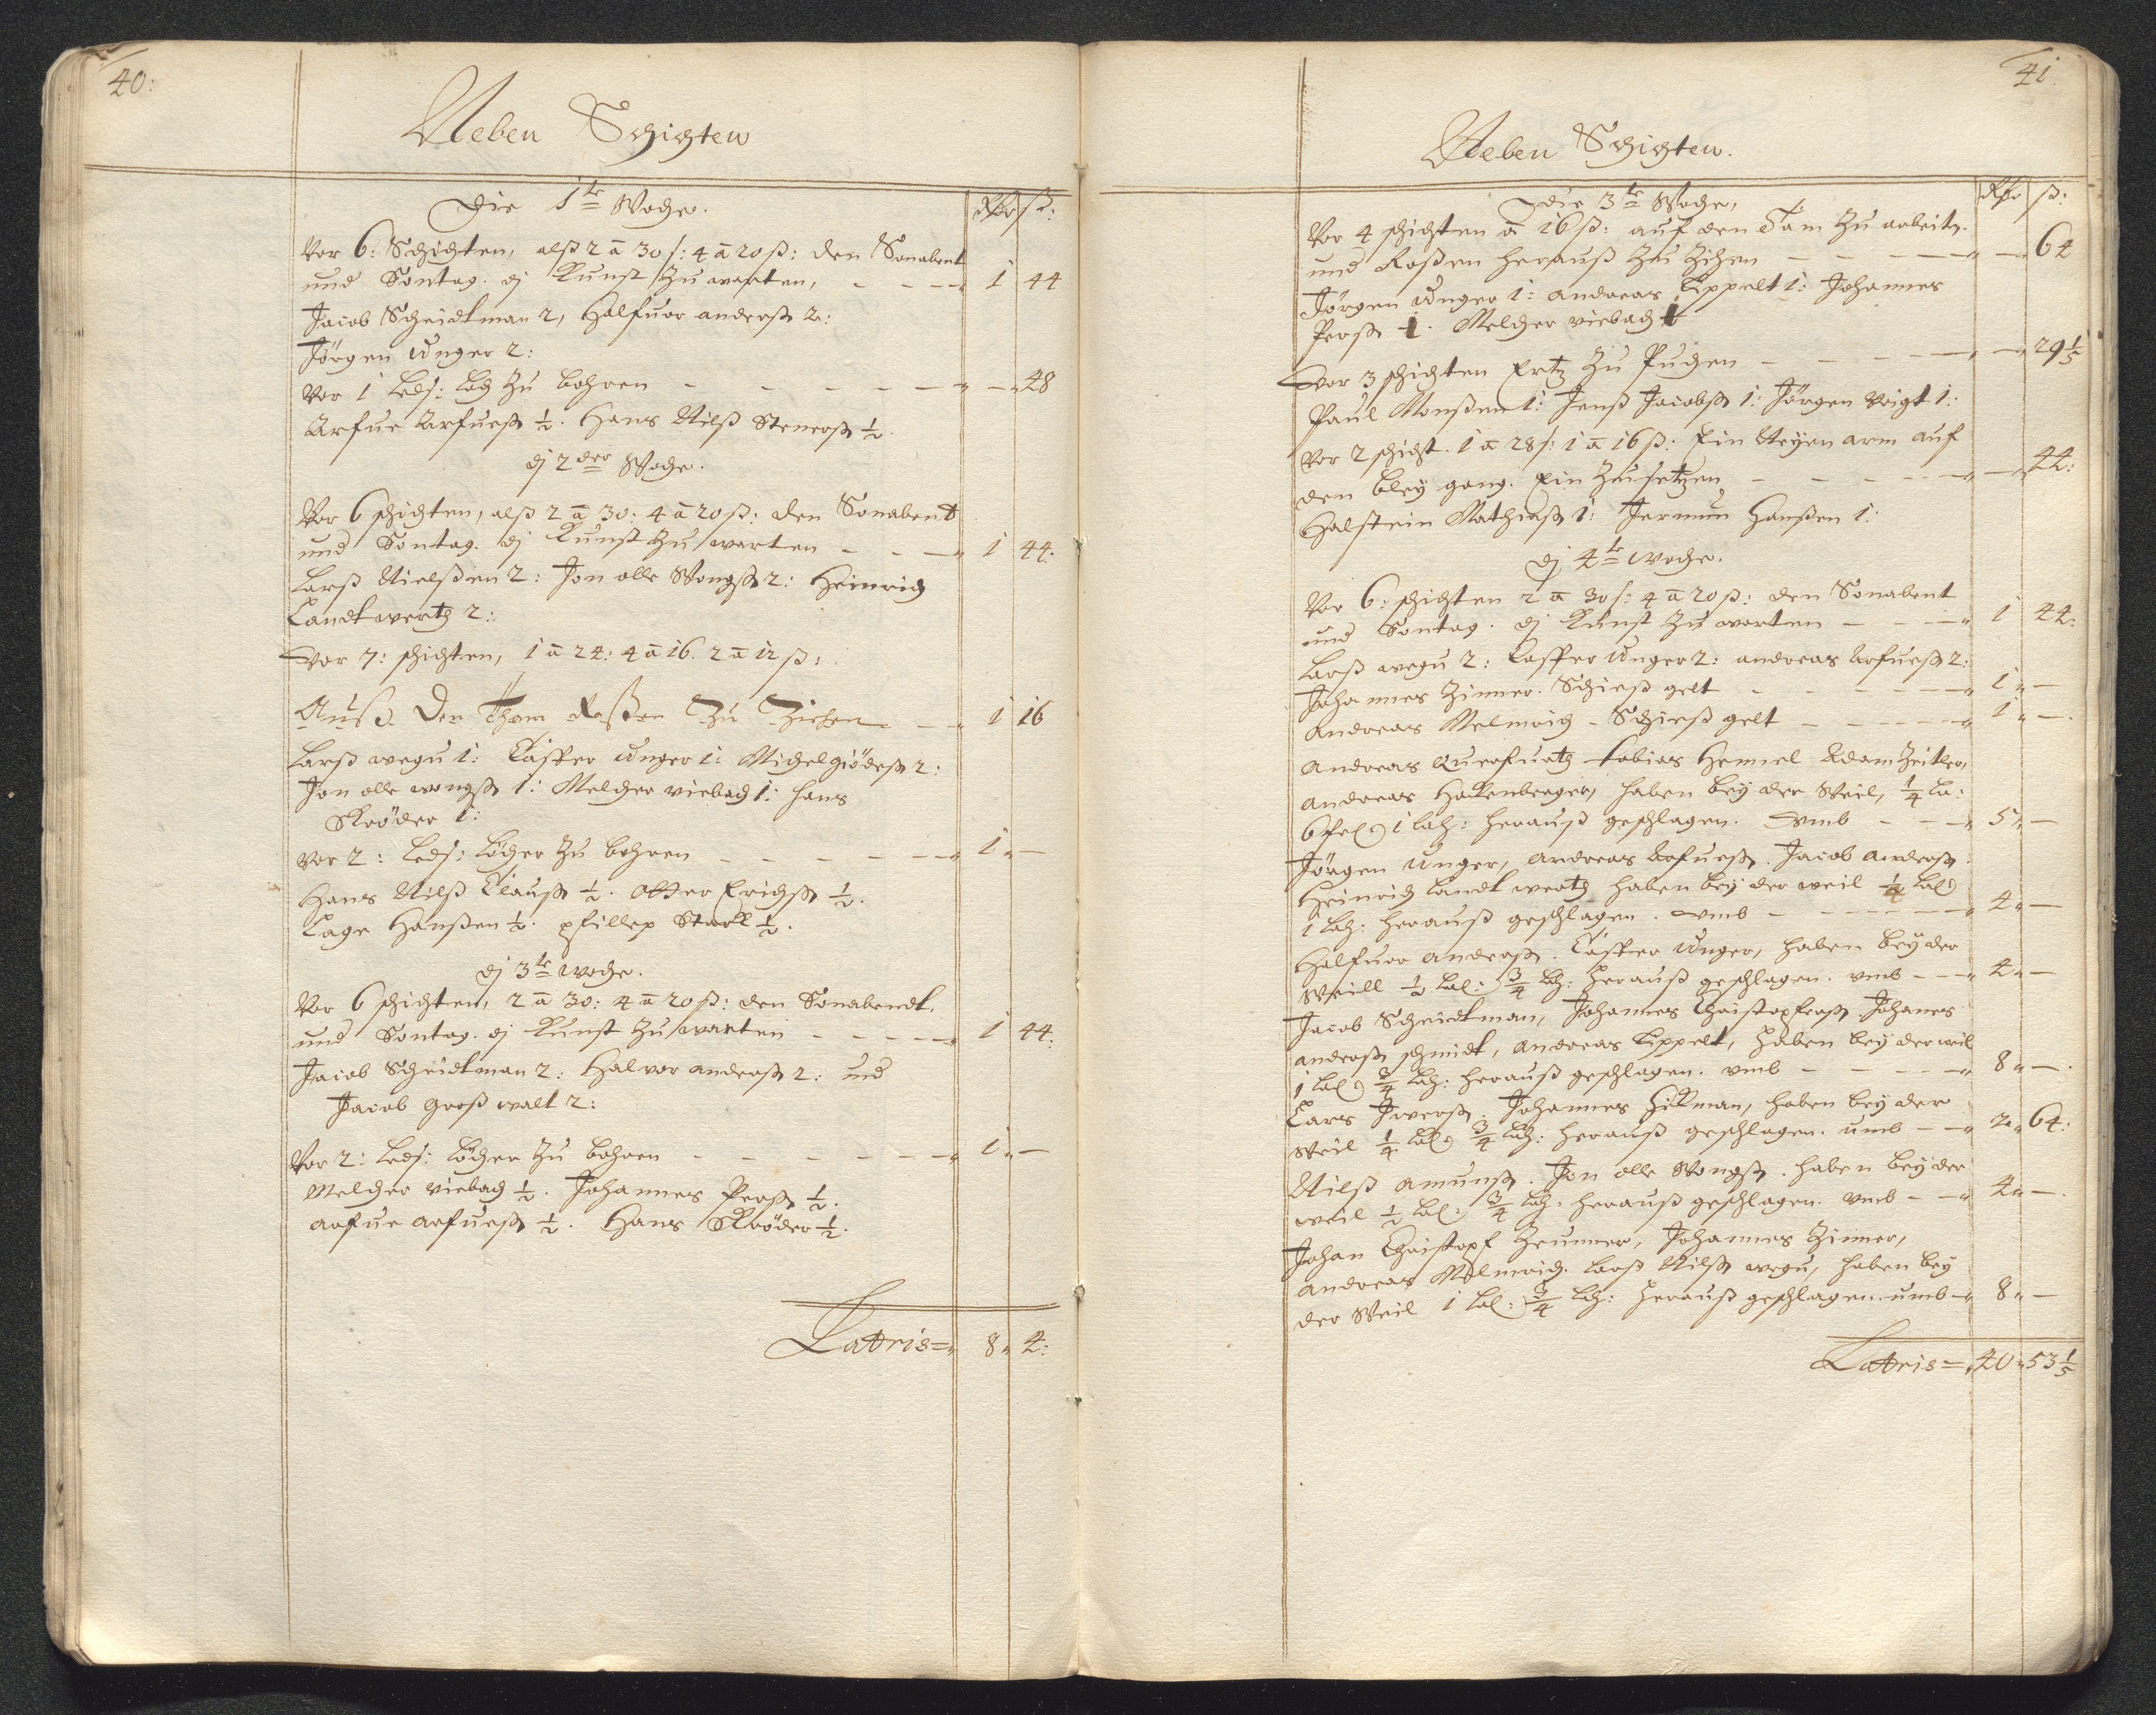 40:
Neben Schichten
Die 1te Woche.
Rthr ß:
Vor 6: Schichten, alß 2 a 30 s: 4 a 20 ß: den Sonabent
und Sontag. dj Kunst zu warten, - - - 1 44
Jacob Scheidtman 2, Halfuor anderß 2:
Jörgen Unger 2:
Vor 1 Leds: Loch zu bohren - - - - - 48
Arfue Arfueß ½. Hans Nilß Stenerß ½.
dj 2der Woche.
Vor 6 schichten, alß 2 a 30: 4 a 20 ß: den Sonabent
und Sontag. dj Kunst zu warten - - - 1 44:
Larß Nielßen 2: Jon olle Wongß 2: Heinrich
Landtwertz 2:
Vor 7: schichten, 1 a 24: 4 a 16. 2 a 12 ß:
Auß den Tham Roßen Zu Ziehen - 1 16
Larß wegu 1: Casper Unger 1: Michel giödeß 2:
Jon olle wongß 1: Melcher viebach 1: hans
Skröder 1:
Vor 2: Leds: Löcher zu bohren - - - - - 1 -
Hans Nilß Clauß ½. Otter Erichß ½.
Lage Hanßen ½. pfillep Starll ½.
dj 3te woche.
Vor 6 schichten, 2 a 30: 4 a 20 ß: den Sonabendt.
und Sontag. dj Kunst zu warten - - - - 1 44:
Jacob Scheidtman 2: Halvor anderß 2: und
Jacob großwalt 2:
Vor 2: Leds: Löcher zu bohren - - - - - 1 -
Melcher viebach ½. Johannes Perß ½.
arfue arfueß ½. Hans Skröder ½.
Lattris= 8 4:
41
Neben Schichten.
Die 3te Woche,
Rthr ß:
Vor 4 schichten a 16 ß: auf den Tam zu arbeit.
und Roßen herauß zu zihen - - - - 64
Jörgen Unger 1: andreas Lippelt 1: Johannes
Perß 1. Melcher viebach 1
Vor 3 schichten Ertz zu Puchen - - - - 29 1/5
Paul Monßen 1: Jenß Jacobß 1: Jörgen Voigt 1:
Vor 2 schicht. 1 a 28 s: 1 a 16 ß: Ein Neyen arm auf
den bley gang. Ein Zusetzen - - - - 44:
Halstein Mathiaß 1: Jermun Hanßen 1:
dj 4te woche.
Vor 6: schichten 2 a 30 s: 4 a 20 ß: den Sonabent
und Sontag. dj Kunst zu warten - - - 1 44:
Larß wegu 2: Casper Unger 2: andreas Arfueß 2:
Johannes Zinner. Schieß gelt - - - - - 1 -
Andreas Melmrich - Schieß gelt - - - - 1 -.
Andreas Querfurtz tobias Hemel Adam Zeitler,
Andreas Hakenberger, haben bey der Weil, ¼ La:
1 Lach: herauß geschlagen. Vmb - - - 5 -
Jörgen Unger, Andreas Arfueß. Jacob anderß
Heinrich Landt wertz haben bey der weil ¼ Lach
1 Lach: herauß geschlagen. vmb - - - - 4 -
Halfuor anderß. Casper Unger, haben bey der
Weill ½ Lach: ¾ Lach: herauß geschlagen. vmb - - 4 -
Jacob Scheidtman, Johannes Christopferß. Johanes
anderß schmidt, andreas Lippelt, haben bey der weil
1 Lach ¾ Lach: herauß geschlagen. vmb - - - - 8 -.
Lars Iverß. Johannes Hilman, haben bey der
Weil ¼ Lach ¾ Lach: herauß geschlagen. umb - - 2 64:
Nilß amunß. Jon olle Wongß. haben bey der
weil ½ Lach. ¾ Lach: herauß geschlagen. vmb - - 4 -.
Johan Christopf Zeunner, Johannes Zinner,
Andreas Melmrich. Larß Nilß wegu, haben bey
der Weil 1 Lach: ¾ Lach: herauß geschlagen. umb - 8 -
Lattris= 40 53 1/5